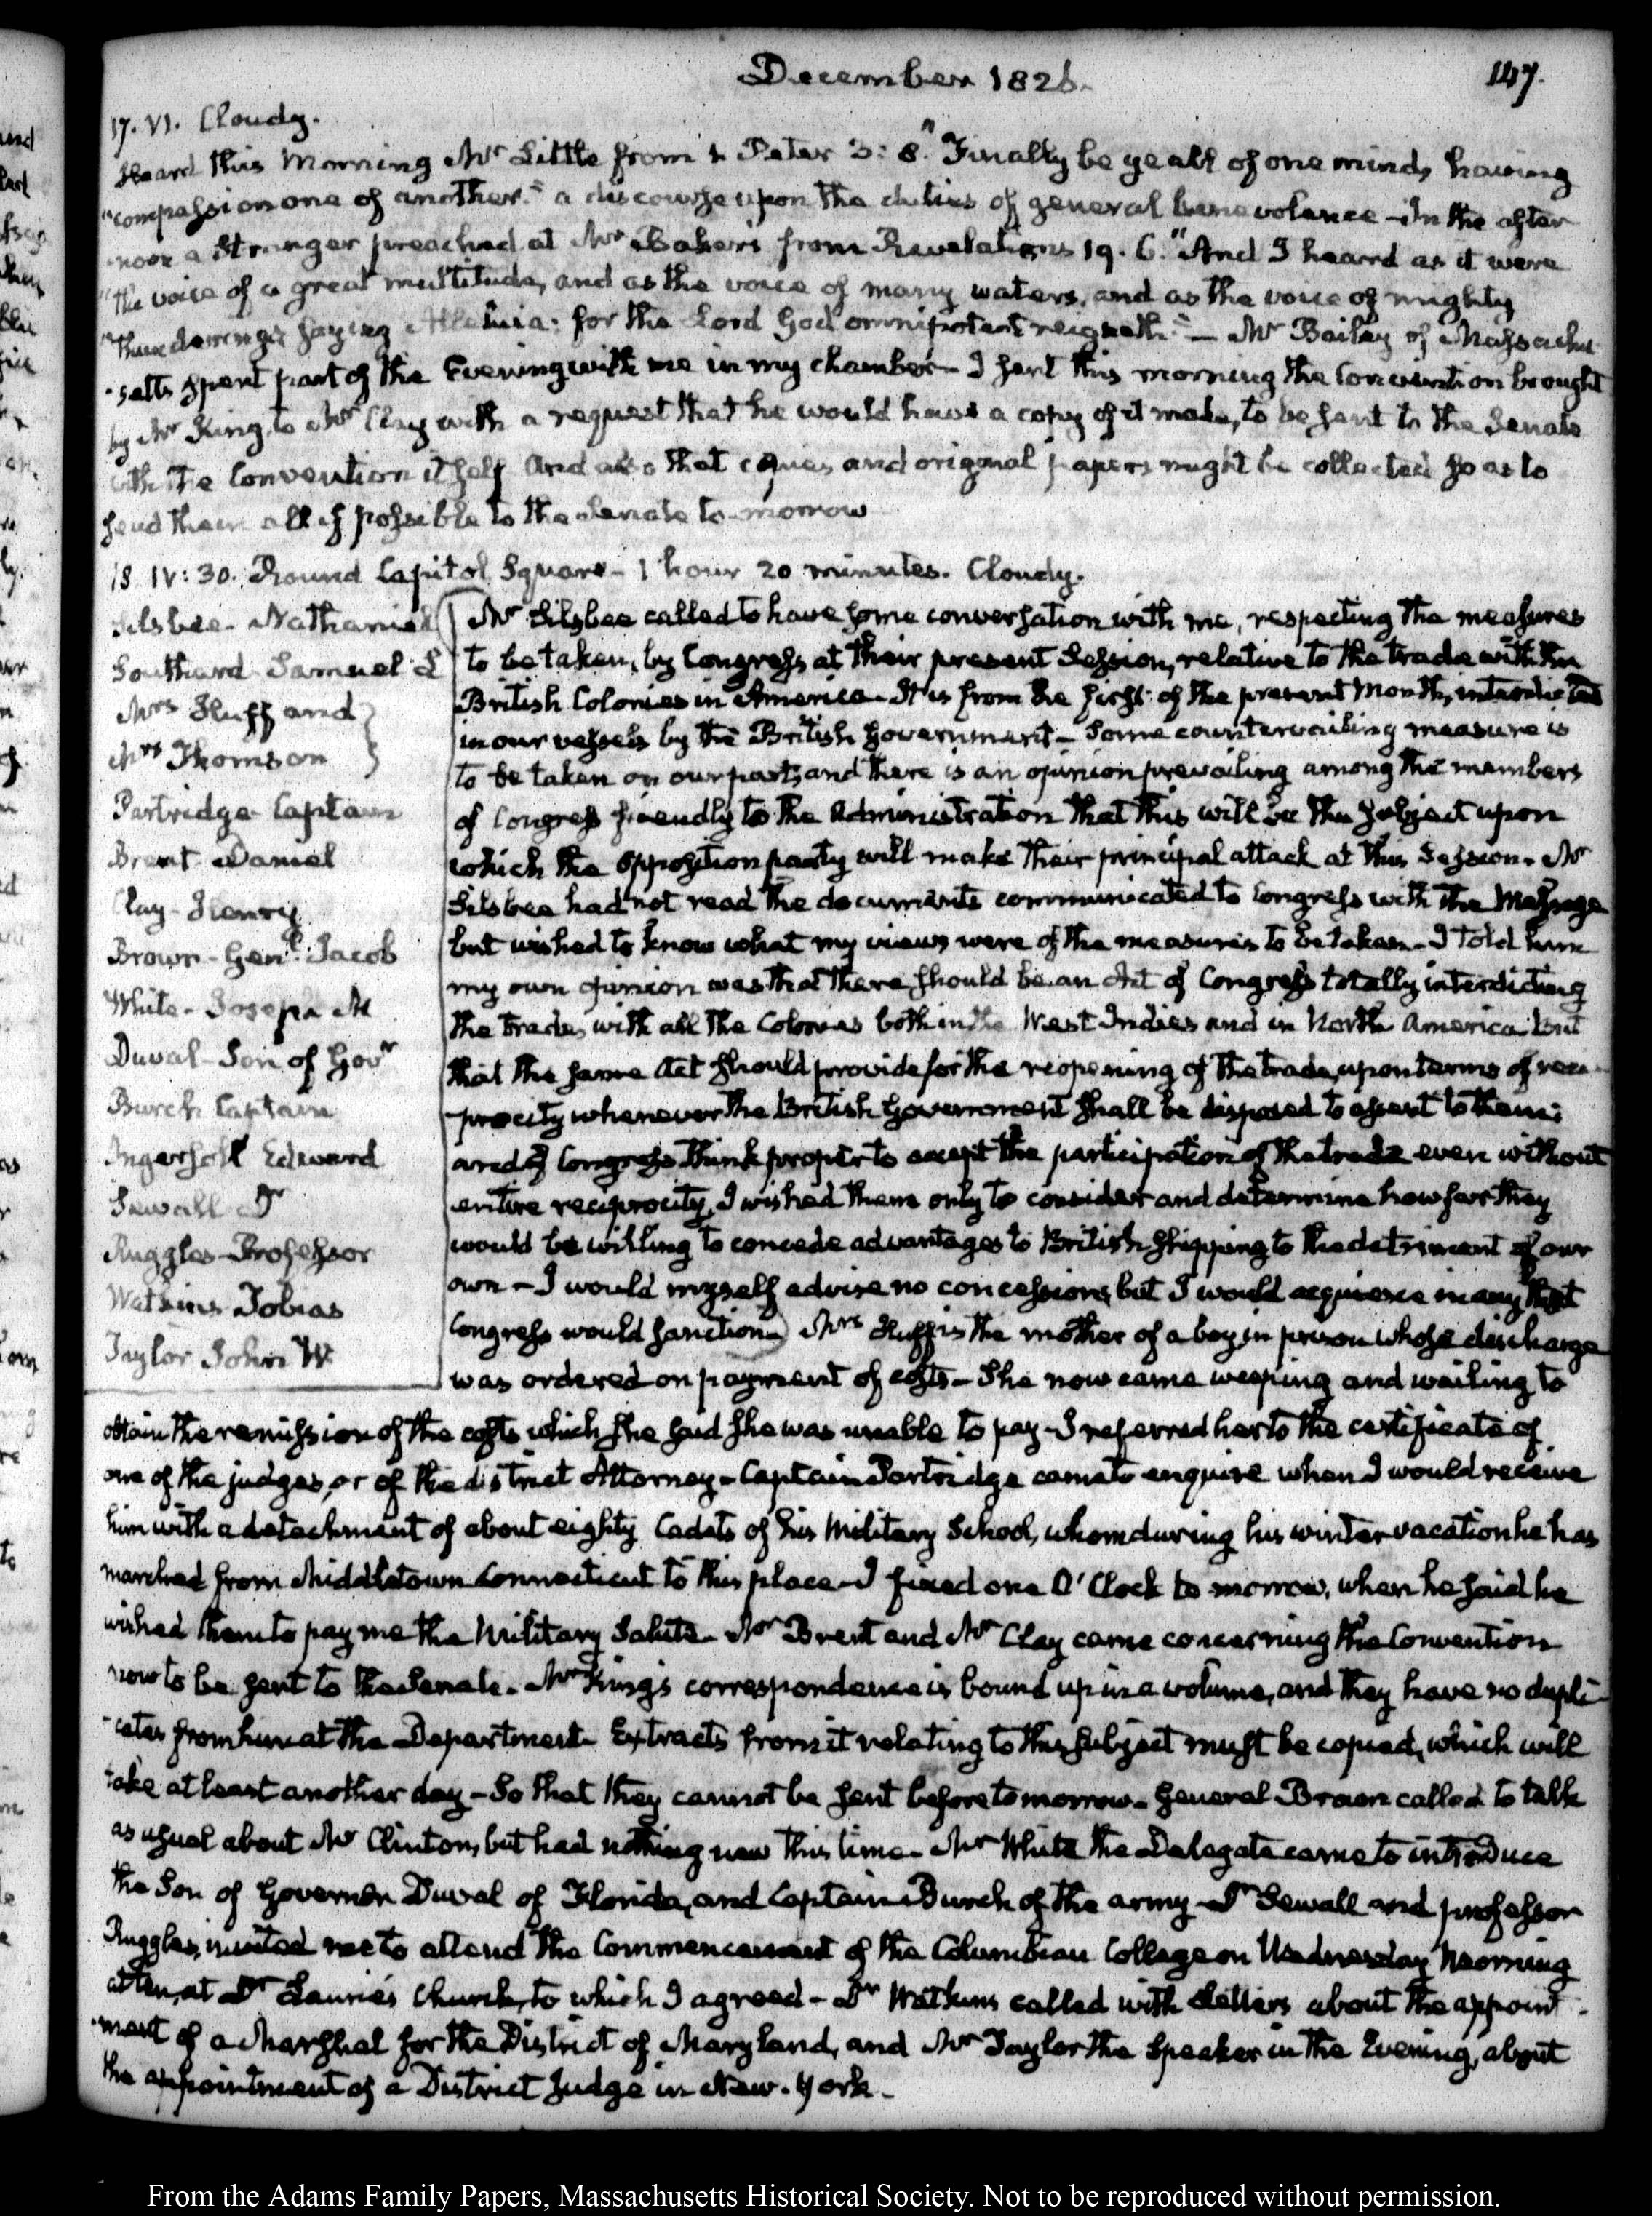 December 1826.
147.
17. VI. Cloudy.
Heard this Morning Mr Little from 1 Peter 3: 8. "Finally be ye all of one mind, having
"compassion one of another." a discourse upon the duties of general benevolence – In the after
-noon a Stranger preached at Mr Baker's from Revelations 19. 6. "And I heard as it were
"the voice of a great multitude, and as the voice of many waters, and as the voice of mighty
"thunderings saying Alleluia: for the Lord God omnipotent reigneth." – Mr Bailey of Massachu
-setts spent part of the Evening with me in my chamber – I sent this morning the Convention brought
by Mr King, to Mr Clay with a request that he would have a copy of it made, to be sent to the Senate
with the Convention itself And also that copies and original papers might be collected so as to
send them all if possible to the Senate to-morrow
18 IV: 30. Round Capitol Square – 1 hour 20 minutes. Cloudy.
Silsbee – Nathaniel
Southard Samuel L
Mrs Huff and
Mrs Thomson
Partridge Captain
Brent Daniel
Clay – Henry
Brown – Genl. Jacob
White – Joseph M
Duval – Son of Govr
Burch Captain
Ingersoll Edward
Sewall Dr
Ruggles – Professor
Watkins Tobias
Taylor John W
Mr Silsbee called to have some conversation with me, respecting the measures
to be taken, by Congress at their present Session, relative to the trade with the
British Colonies in America – It is from the first of the present Month, interdicted
in our vessels by the British Government – Some countervailing measure is
to be taken on our part, and there is an opinion prevailing among the members
of Congress friendly to the Administration that this will be the subject upon
which the opposition party will make their principal attack at this Session. Mr
Silsbee had not read the documents communicated to Congress with the Message
but wished to know what my views were of the measures to be taken – I told him
my own opinion was that there should be an Act of Congress totally interdicting
the trade, with all the Colonies both in the West Indies and in North America but
that the same Act should provide for the reopening of the trade, upon terms of reci
-procity whenever the British Government shall be disposed to assent to them:
and if Congress think proper to accept the participation of the trade even without
entire reciprocity, I wished them only to consider and determine how far they
would be willing to concede advantages to British shipping to the detriment of our
own – I would myself advise no concession, but I would acquiesce in any that
Congress would sanction) Mrs Huff is the mother of a boy in prison whose discharge
was ordered on payment of costs – She now came weeping and wailing to
obtain the remission of the costs which she said she was unable to pay – I referred her to the certificate of
one of the judges, or of the district Attorney – Captain Partridge came to enquire when I would receive
him with a detachment of about eighty Cadets of his Military School, whom during his winter vacation he has
marched from Middletown Connecticut to this place – I fixed one O'Clock to morrow, when he said he
wished them to pay me the Military Salute – Mr Brent and Mr Clay came concerning the Convention
now to be sent to the Senate. Mr King's correspondence is bound up in a volume, and they have no dupli
-cates from him at the Department – Extracts from it relating to this subject must be copied, which will
take at least another day – So that they cannot be sent before tomorrow – General Brown called to talk
as usual about Mr Clinton, but had nothing new this time – Mr White the Delegate came to introduce
the Son of Governor Duval of Florida, and Captain Burch of the army – Dr Sewall and professor
Ruggles, invited me to attend the Commencement of the Columbian College on Wednesday Morning
at ten, at Dr Laurie's Church, to which I agreed – Dr Watkins called with letters about the appoint
-ment of a Marshal for the District of Maryland, and Mr Taylor the Speaker in the Evening, about
the appointment of a District Judge in New-York –
From the Adams Family Papers, Massachusetts Historical Society. Not to be reproduced without permission.